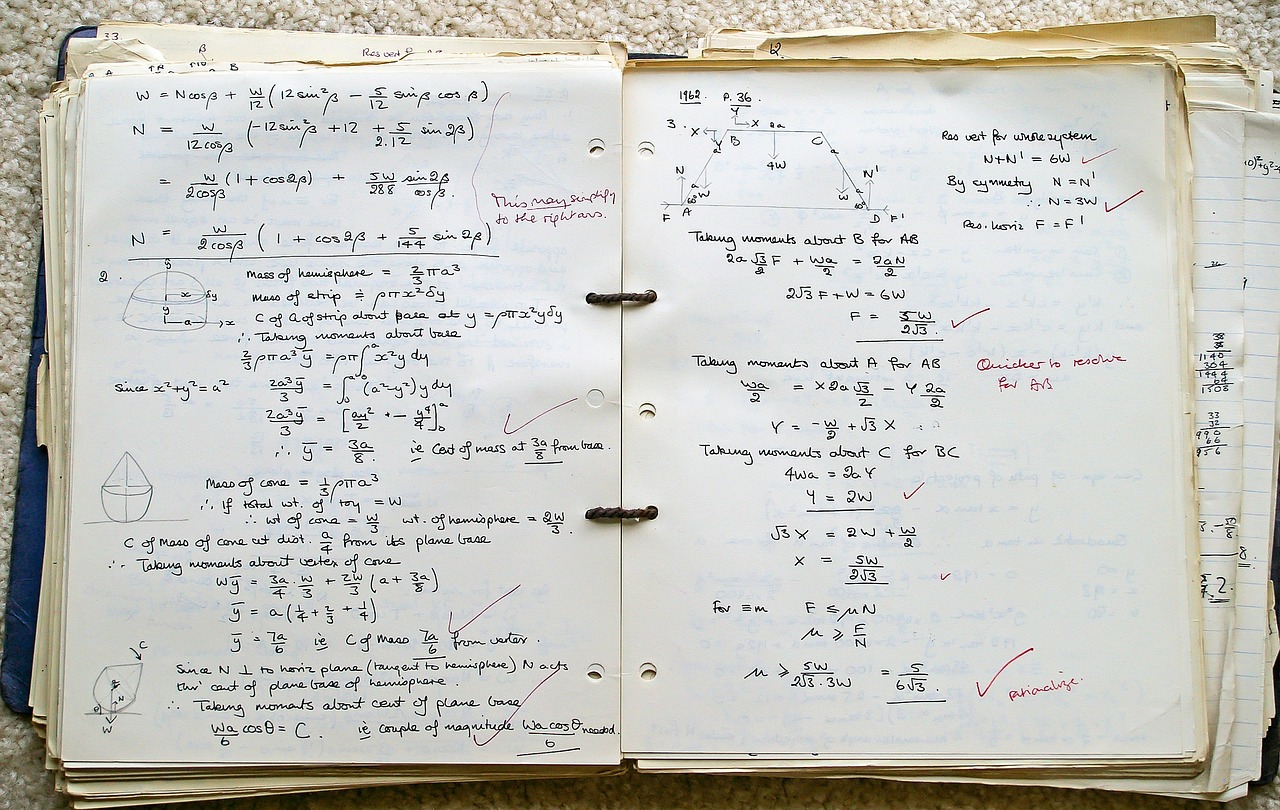 33.
β
Res vert
W = Ncosβ + W/12 (12 sin²β − 5/12 sinβ cosβ)
N = W/12cosβ (−12sin²β + 12 + 5/2.12 sin2β)
= W/2cosβ (1 + cos2β) + 5W/288 sin2β/cosβ.
This may simplify
to the right ans.
N = W/2cosβ (1 + cos2β + 5/144 sin2β)
2.
y
x δy
y
a x
Mass of hemisphere = 2/3 πa³
Mass of strip ≑ ρπx²δy
C of G of strip about base at y = ρπx²yδy
∴ Taking moments about base
2/3 ρπa³ȳ = ρπ∫₀ᵃ x²y dy
Since x²+y²=a² 2a³ȳ/3 = ∫₀ᵃ (a²−y²)y dy
2a³ȳ/3 = [ay²/2 − y⁴/4]₀ᵃ
∴ ȳ = 3a/8 ie Cent of mass at 3a/8 from base.
Mass of cone = 1/3 ρπa³
∴ If total wt. of toy = W
∴ wt of cone = W/3 wt. of hemisphere = 2W/3.
C of Mass of cone at dist. a/4 from its plane base
∴ Taking moments about vertex of cone
Wȳ = 3a/4 . W/3 + 2W/3 (a + 3a/8)
ȳ = a(1/4 + 2/3 + 1/4)
ȳ = 7a/6 ie C of Mass 7a/6 from vertex.
C
N
θ
W
Since N ⊥ to horiz plane (tangent to hemisphere) N acts
thro' cent of plane base of hemisphere.
∴ Taking moments about cent of plane base
Wa/6 cosθ = C. ie couple of magnitude Wa cosθ/6 needed.
12.
1962. P. 36.
3.
Y
X X 2a
B C
Y a a
4W
N a W W a N'
60° 60°
F A D F'
Res vert for whole system
N+N' = 6W
By symmetry N = N'
∴ N = 3W
Res. horiz F = F'
Taking moments about B for AB
2a √3/2 F + Wa/2 = 2aN/2
2√3 F + W = 6W
F = 5W/2√3.
Taking moments about A for AB
Quicker to resolve
for AB
Wa/2 = X 2a √3/2 − Y 2a/2
Y = −W/2 + √3 X
Taking moments about C for BC
4Wa = 2aY
Y = 2W
√3 X = 2W + W/2
X = 5W/2√3
For ≡m F ≤ μN
μ ≥ F/N
μ ≥ 5W/2√3.3W = 5/6√3.
rationalize.
38
38
1140
304
1444
64
1508
33
32
990
66
956